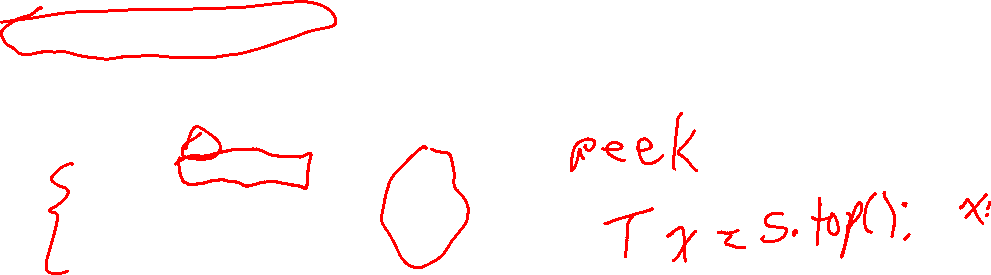 peek
{
T x = s.top(); x: